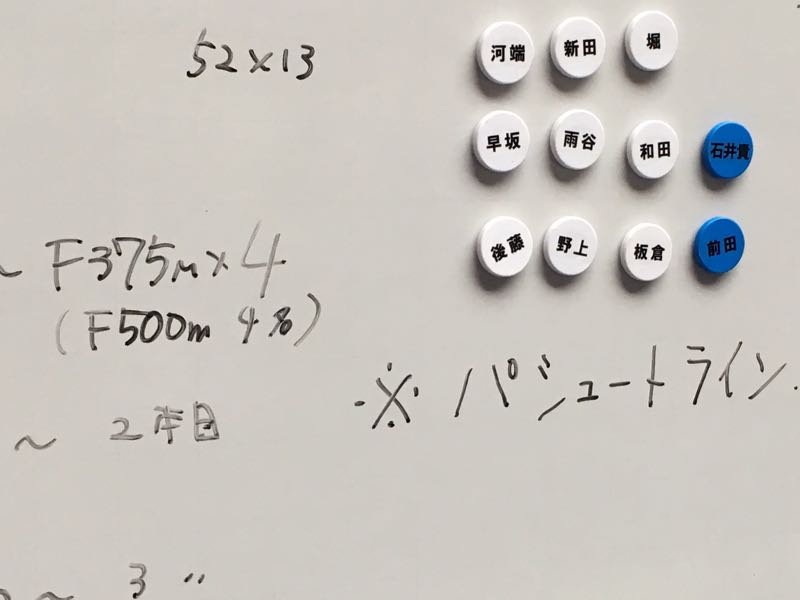 52×13
河端 新田 堀
早坂 雨谷 和田 石井貴
後藤 野上 板倉 前田
~ F375m×4
(F500m 4%)
※ パシュートライン
~ 2本目
~ 3 〃